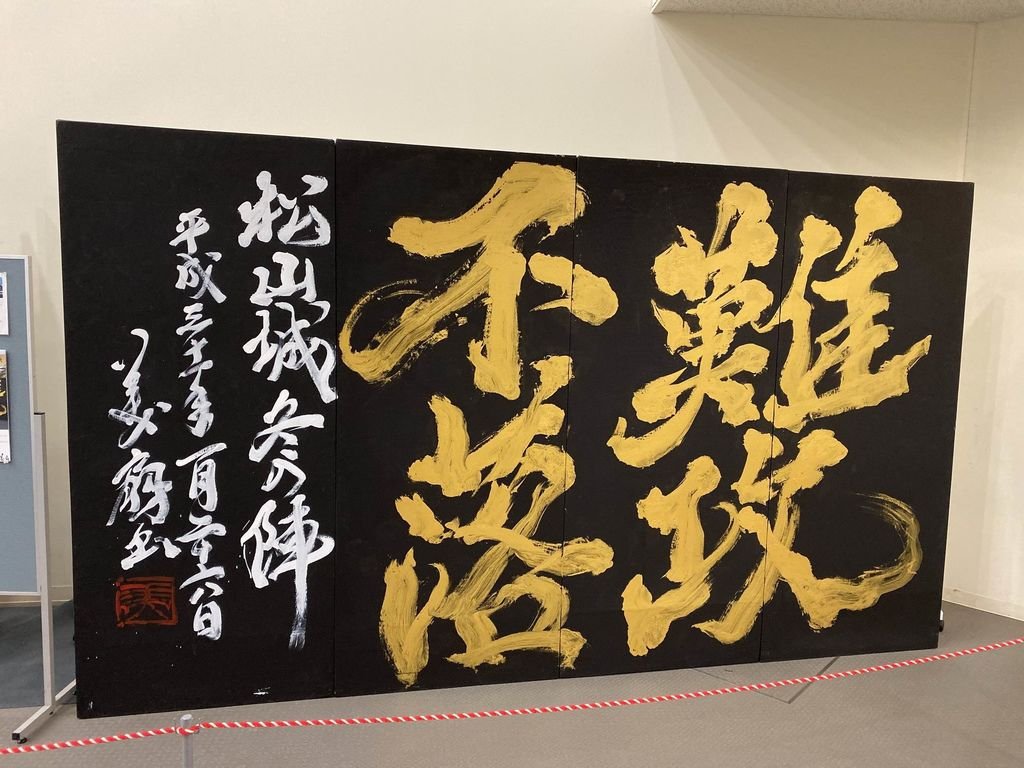 難攻
不落
松山城冬の陣
平成三十年一月二十六日
美